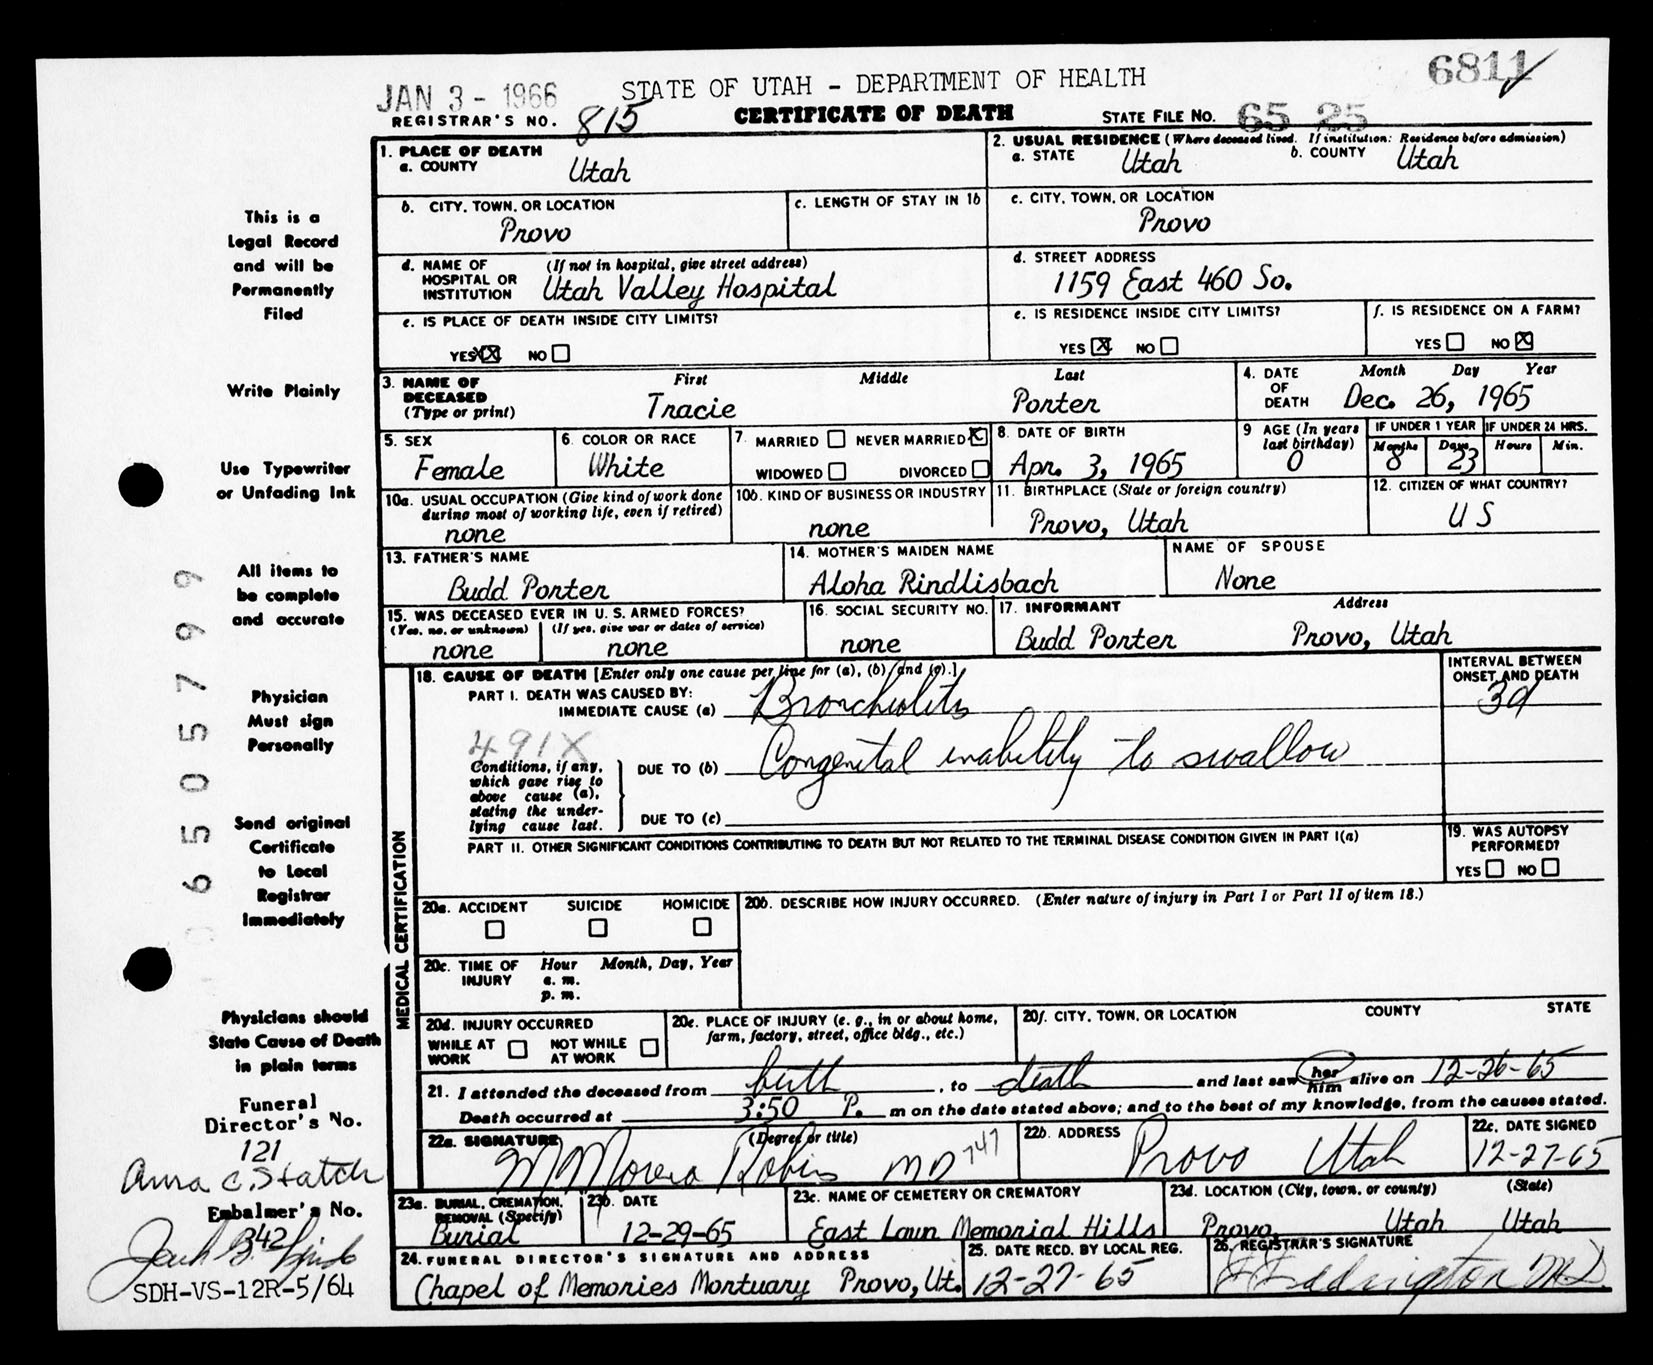 JAN 3 - 1966
STATE OF UTAH - DEPARTMENT OF HEALTH
6811
REGISTRAR'S NO. 815
CERTIFICATE OF DEATH
STATE FILE NO. 65 25
1. PLACE OF DEATH
a. COUNTY Utah
2. USUAL RESIDENCE (Where deceased lived. If institution: Residence before admission)
a. STATE Utah b. COUNTY Utah
b. CITY, TOWN, OR LOCATION
Provo
c. LENGTH OF STAY IN 1b
c. CITY, TOWN, OR LOCATION
Provo
d. NAME OF HOSPITAL OR INSTITUTION (If not in hospital, give street address)
Utah Valley Hospital
d. STREET ADDRESS
1159 East 460 So.
e. IS PLACE OF DEATH INSIDE CITY LIMITS?
YES XX NO
e. IS RESIDENCE INSIDE CITY LIMITS?
YES X NO
f. IS RESIDENCE ON A FARM?
YES NO X
3. NAME OF DECEASED (Type or print)
First Middle Last
Tracie Porter
4. DATE OF DEATH Month Day Year
Dec. 26, 1965
5. SEX
Female
6. COLOR OR RACE
White
7. MARRIED NEVER MARRIED X
WIDOWED DIVORCED
8. DATE OF BIRTH
Apr. 3, 1965
9 AGE (In years last birthday)
0
IF UNDER 1 YEAR
Months Days
8 23
IF UNDER 24 HRS.
Hours Min.
10a. USUAL OCCUPATION (Give kind of work done during most of working life, even if retired)
none
10b. KIND OF BUSINESS OR INDUSTRY
none
11. BIRTHPLACE (State or foreign country)
Provo, Utah
12. CITIZEN OF WHAT COUNTRY?
U S
13. FATHER'S NAME
Budd Porter
14. MOTHER'S MAIDEN NAME
Aloha Rindlisbach
NAME OF SPOUSE
None
15. WAS DECEASED EVER IN U. S. ARMED FORCES?
(Yes, no, or unknown) (If yes, give war or dates of service)
none none
16. SOCIAL SECURITY NO.
none
17. INFORMANT Address
Budd Porter Provo, Utah
MEDICAL CERTIFICATION
18. CAUSE OF DEATH [Enter only one cause per line for (a), (b), and (c).]
PART I. DEATH WAS CAUSED BY:
IMMEDIATE CAUSE (a) Bronchiolitis
INTERVAL BETWEEN ONSET AND DEATH
3d
491X
Conditions, if any, which gave rise to above cause (a), stating the underlying cause last.
DUE TO (b) Congenital inability to swallow
DUE TO (c)
PART II. OTHER SIGNIFICANT CONDITIONS CONTRIBUTING TO DEATH BUT NOT RELATED TO THE TERMINAL DISEASE CONDITION GIVEN IN PART I(a)
19. WAS AUTOPSY PERFORMED?
YES NO
20a. ACCIDENT SUICIDE HOMICIDE
20b. DESCRIBE HOW INJURY OCCURRED. (Enter nature of injury in Part I or Part II of item 18.)
20c. TIME OF INJURY Hour Month, Day, Year
a. m.
p. m.
20d. INJURY OCCURRED
WHILE AT WORK NOT WHILE AT WORK
20e. PLACE OF INJURY (e. g., in or about home, farm, factory, street, office bldg., etc.)
20f. CITY, TOWN, OR LOCATION COUNTY STATE
21. I attended the deceased from birth, to death and last saw her him alive on 12-26-65
Death occurred at 3:50 P. m on the date stated above; and to the best of my knowledge, from the causes stated.
22a. SIGNATURE (Degree or title)
MD 747
22b. ADDRESS
Provo Utah
22c. DATE SIGNED
12-27-65
23a. BURIAL, CREMATION, REMOVAL (Specify)
Burial
23b. DATE
12-29-65
23c. NAME OF CEMETERY OR CREMATORY
East Lawn Memorial Hills
23d. LOCATION (City, town, or county) (State)
Provo Utah Utah
24. FUNERAL DIRECTOR'S SIGNATURE AND ADDRESS
Chapel of Memories Mortuary Provo, Ut.
25. DATE RECD. BY LOCAL REG.
12-27-65
26. REGISTRAR'S SIGNATURE
M.D.
This is a
Legal Record
and will be
Permanently
Filed
Write Plainly
Use Typewriter
or Unfading Ink
All items to
be complete
and accurate
Physician
Must sign
Personally
Send original
Certificate
to Local
Registrar
Immediately
Physicians should
State Cause of Death
in plain terms
Funeral
Director's No.
121
Anna C.
Embalmer's No.
342
SDH-VS-12R-5/64
6505799